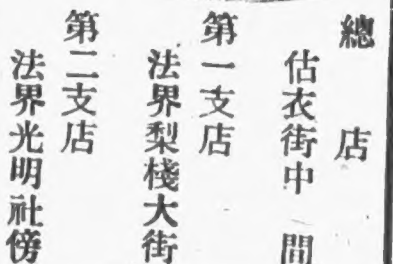 總店
估衣街中間
第一支店
法界梨棧大街
第二支店
法界光明社傍